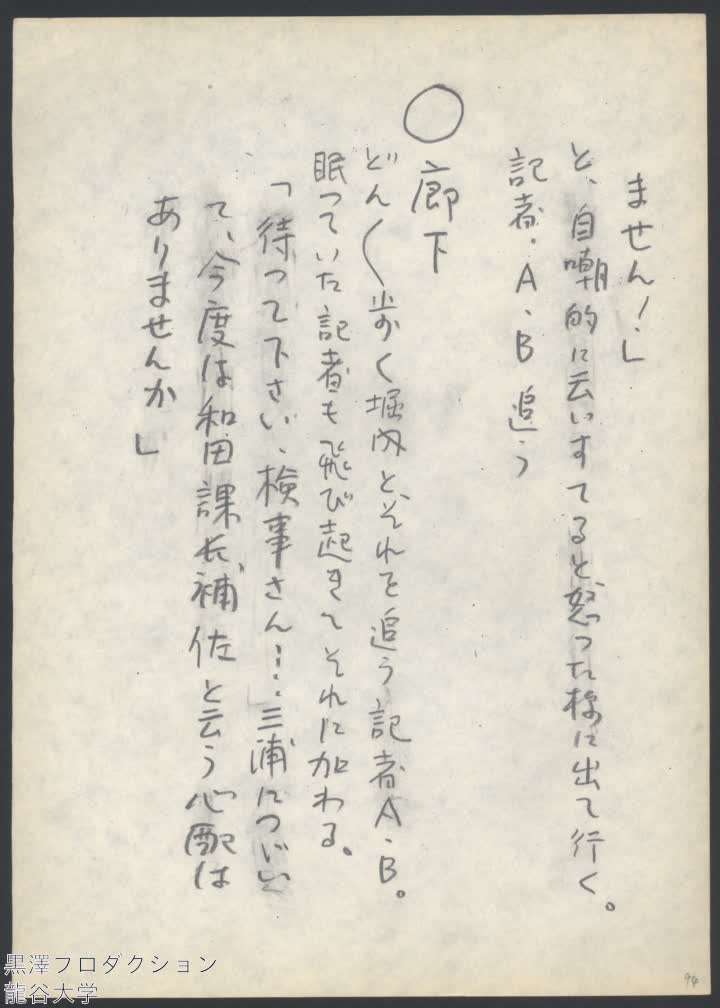 ません！」
と、自嘲的に云いすてると怒った様に出て行く。
記者・A・B 追う
○ 廊下
どん〱歩く堀内と、それを追う記者A・B。
眠っていた記者も飛び起きてそれに加わる。
「待って下さい、検事さん…三浦につゞい
て、今度は和田課長補佐と云う心配は
ありませんか」
94
黒澤プロダクション
龍谷大学